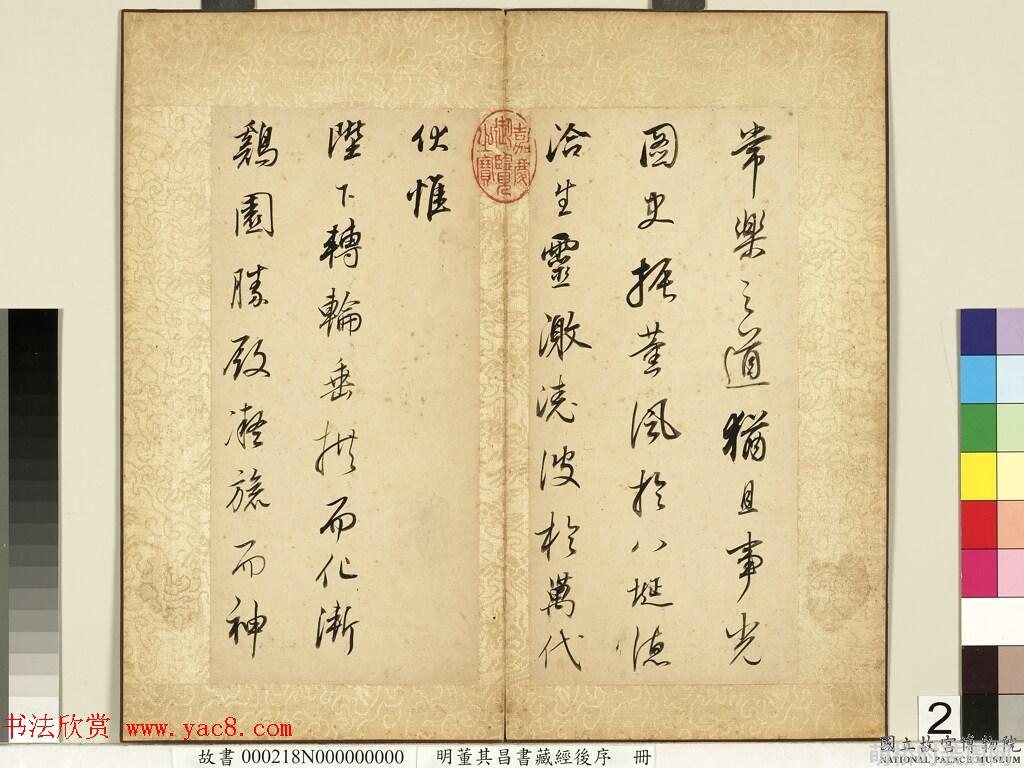 常樂之道猶且事光
圖史振薰風於八埏德
洽生靈激澆波於萬代
伏惟
陛下轉輪垂拱而化漸
鷄園勝殿凝旒而神
嘉慶御覽之寶
2
書法欣賞 www.yac8.com
故書 000218N000000000 明董其昌書藏經後序 冊
國立故宮博物院
NATIONAL PALACE MUSEUM